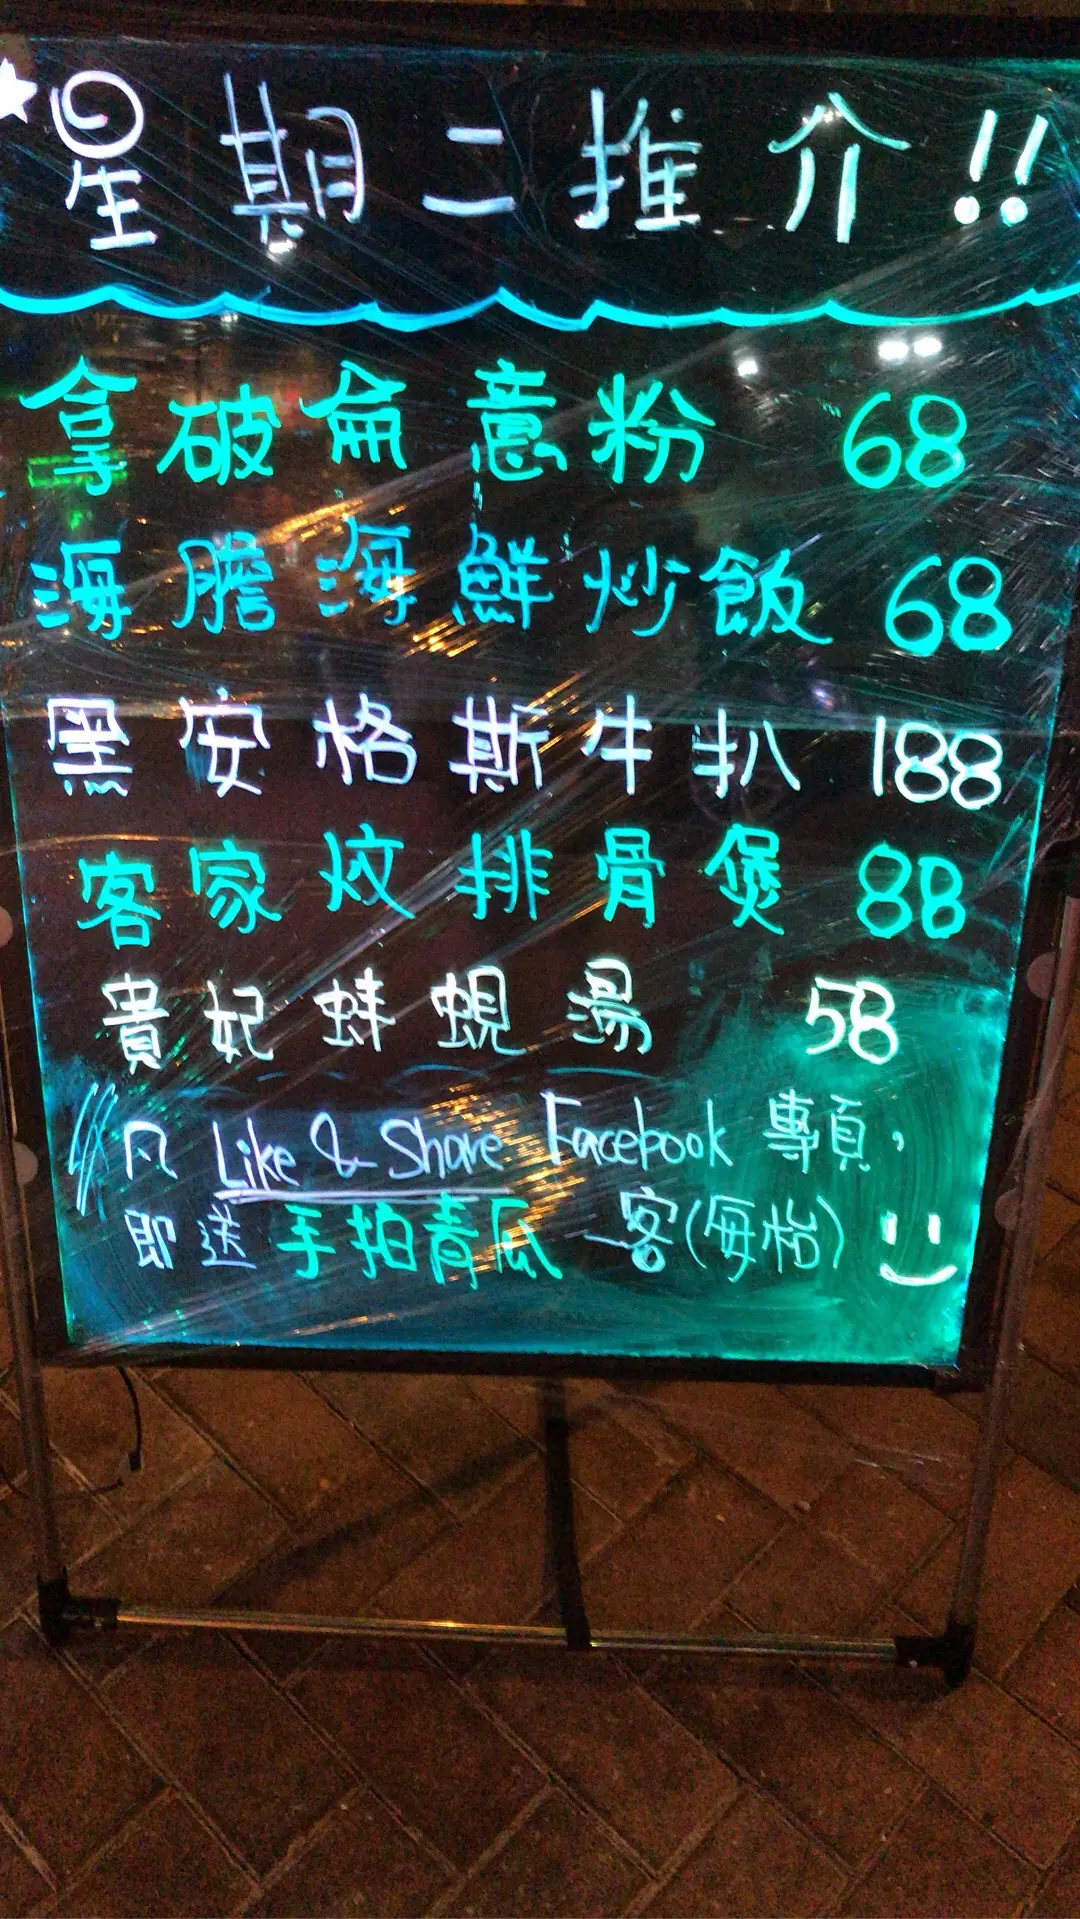 星期二推介!!
拿破侖意粉 68
海膽海鮮炒飯 68
黑安格斯牛扒 188
客家炆排骨煲 88
貴妃蚌蜆湯 58
凡 Like & Share Facebook 專頁,
即送手拍青瓜一客(每枱)